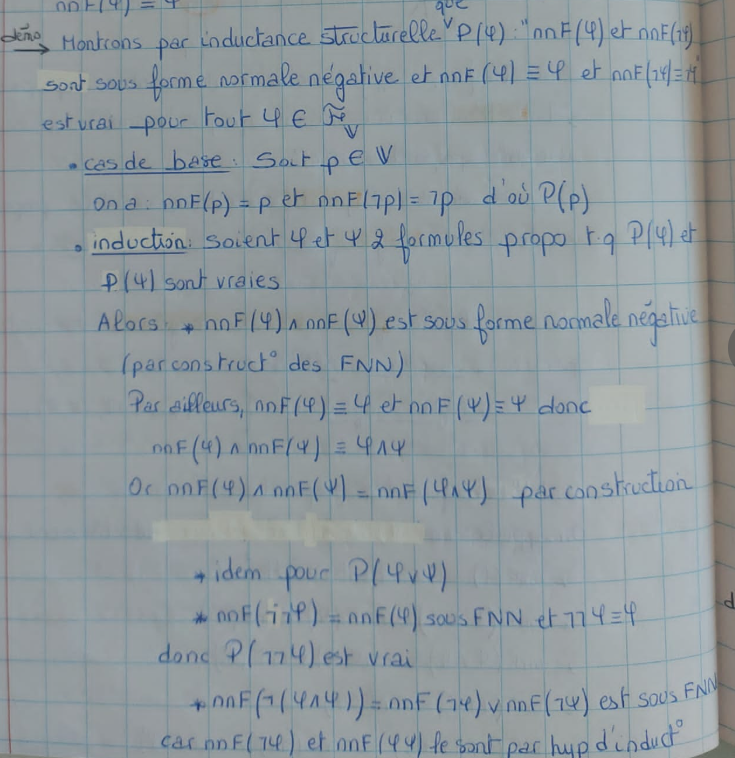 nnF(φ) = φ
que
démo → Montrons par inductance structurelle P(φ) : "nnF(φ) et nnF(¬φ)
sont sous forme normale négative et nnF(φ) ≡ φ et nnF(¬φ) ≡ ¬φ"
est vrai pour tout φ ∈ F_V
• cas de base : Soit p ∈ V
on a : nnF(p) = p et nnF(¬p) = ¬p d'où P(p)
• induction : soient φ et ψ 2 formules propo t.q P(φ) et
P(ψ) sont vraies
Alors : * nnF(φ) ∧ nnF(ψ) est sous forme normale négative
(par construct° des FNN)
Par ailleurs, nnF(φ) ≡ φ et nnF(ψ) ≡ ψ donc
nnF(φ) ∧ nnF(ψ) ≡ φ∧ψ
Or nnF(φ) ∧ nnF(ψ) = nnF(φ∧ψ) par construction
* idem pour P(φ∨ψ)
* nnF(¬¬φ) = nnF(φ) sous FNN et ¬¬φ ≡ φ
donc P(¬¬φ) est vrai
* nnF(¬(φ∧ψ)) = nnF(¬φ) ∨ nnF(¬ψ) est sous FNN
car nnF(¬φ) et nnF(φψ) le sont par hyp d'induct°